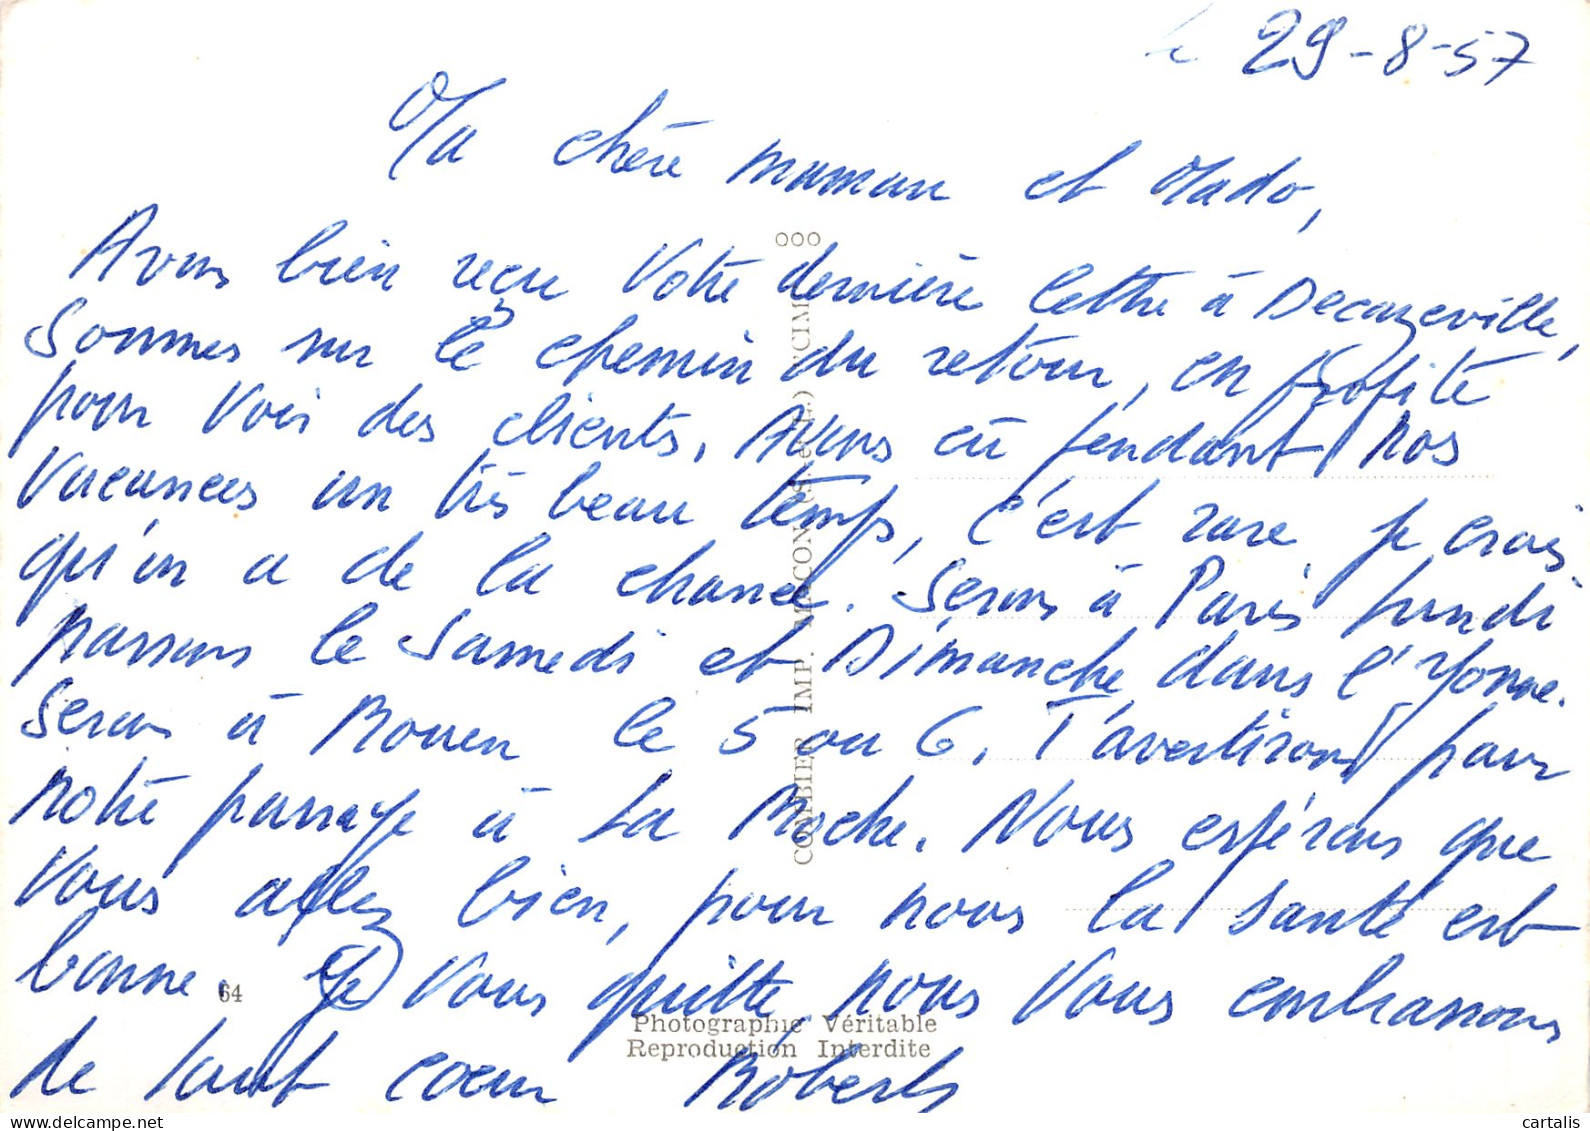 le 29-8-57
Ma chère maman et Mado,
Avons bien reçu votre dernière lettre à Decazeville,
Sommes sur le chemin du retour, en profite
pour voir des clients. Avons eu pendant nos
vacances un très beau temps, c'est rare je crois
qu'on a de la chance. Serons à Paris lundi
passons le Samedi et Dimanche dans l'Yonne.
Serons à Rouen le 5 ou 6. T'avertirons pour
notre passage à La Roche. Nous espérons que
vous allez bien, pour nous la santé est
bonne. Je vous quitte, nous vous embrassons
de tout coeur Roberts
COMBIER IMP. MACON (S.-et-L.) "CIM"
64
Photographie Véritable
Reproduction Interdite
cartalis